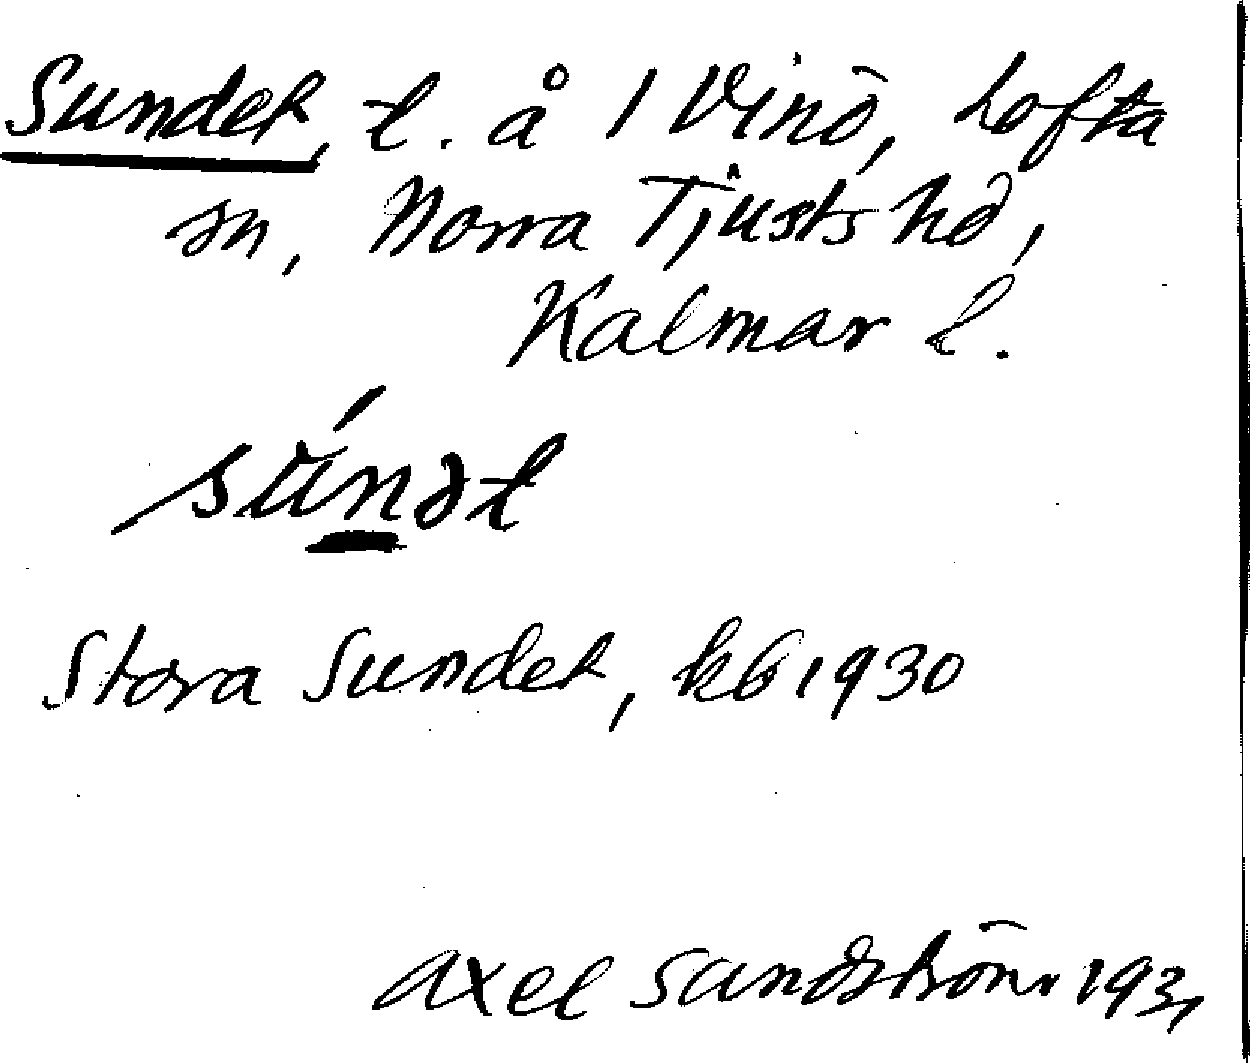 Sundet, t. å 1 Vinö, Lofta
sn, Norra Tjusts hd,
Kalmar l.
súndt
Stora Sundet, kb 1930
Axel Sandström 193